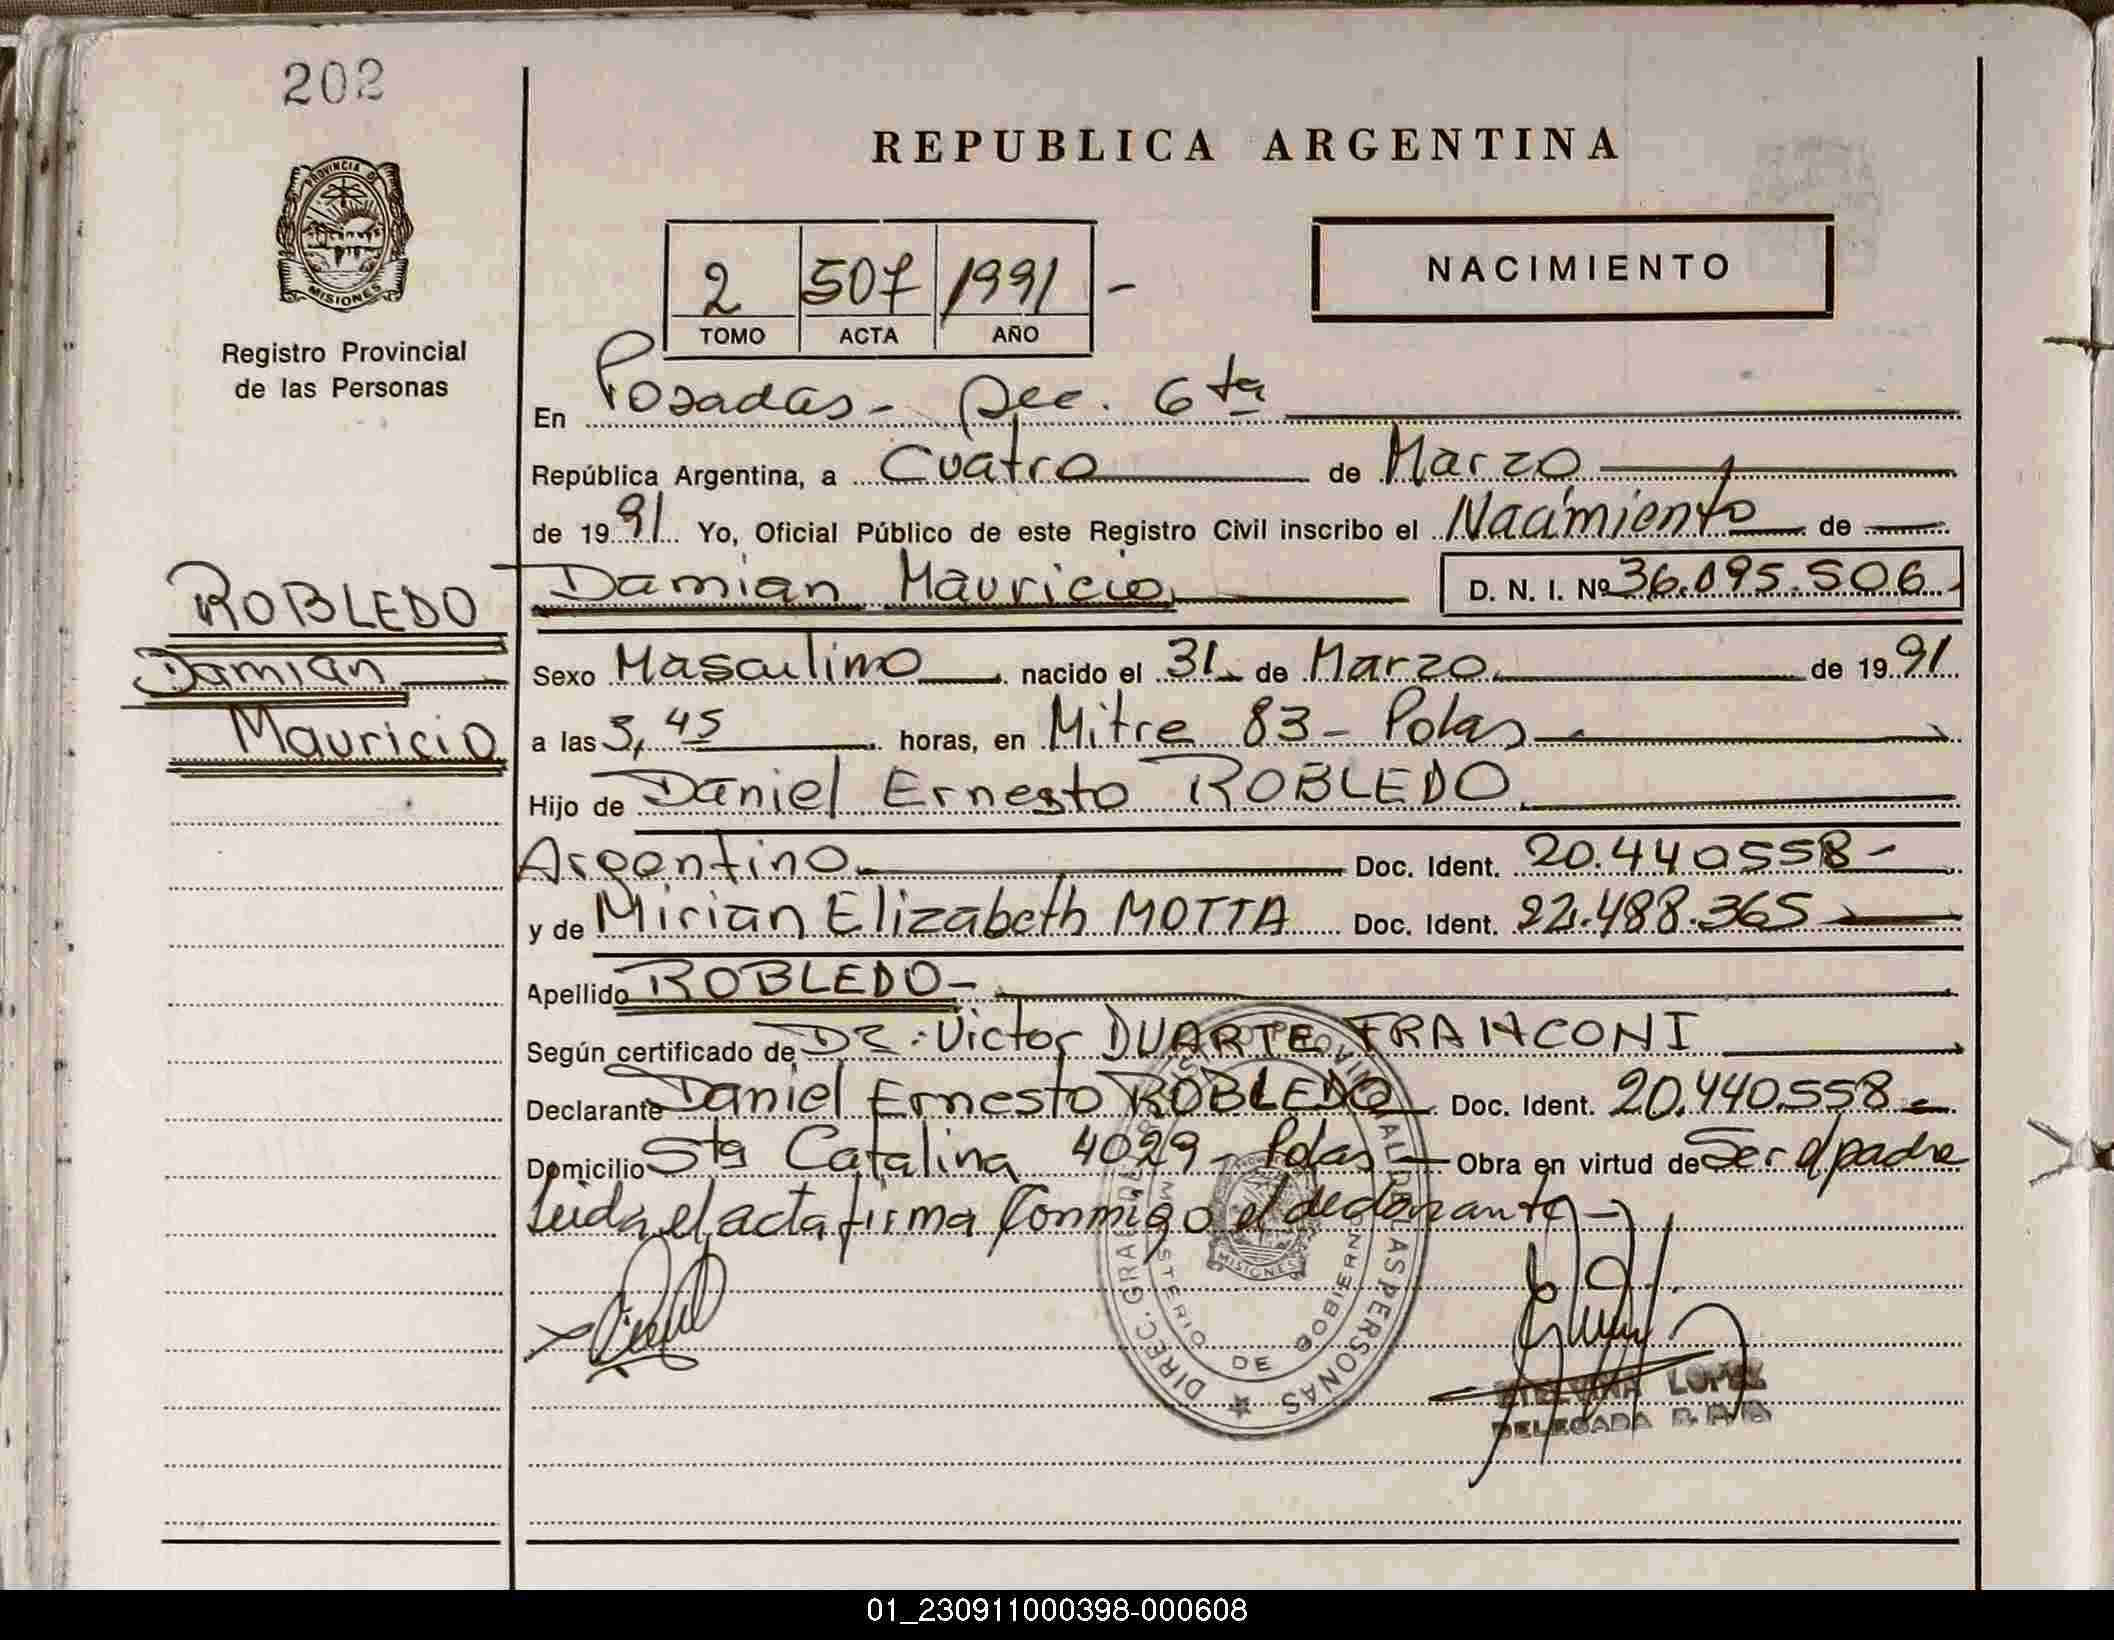 202
REPUBLICA ARGENTINA
PROVINCIA DE
MISIONES
Registro Provincial
de las Personas
NACIMIENTO
2 507 1991 -
TOMO ACTA AÑO
En Posadas - Sec. 6ta
República Argentina, a Cuatro de Marzo
de 1991 Yo, Oficial Público de este Registro Civil inscribo el Nacimiento de
Damian Mauricio D. N. I. Nº 36.095.506
ROBLEDO
Damian
Mauricio
Sexo Masculino nacido el 31 de Marzo de 1991
a las 3,45 horas, en Mitre 83 - Pdas
Hijo de Daniel Ernesto ROBLEDO
Argentino Doc. Ident. 20.440558 -
y de Mirian Elizabeth MOTTA Doc. Ident. 22.488.365
Apellido ROBLEDO -
Según certificado de Dr. Victor DUARTE FRANCONI
Declarante Daniel Ernesto ROBLEDO Doc. Ident. 20.440.558 -
Domicilio Sta Catalina 4029 - Pdas Obra en virtud de Ser el padre
Leida el acta firma Conmigo el declarante -
DIREC. GRAL. DEL REGISTRO PROVINCIAL DE LAS PERSONAS
MINISTERIO DE GOBIERNO
MISIONES
LOPEZ
DELEGADA
01_230911000398-000608